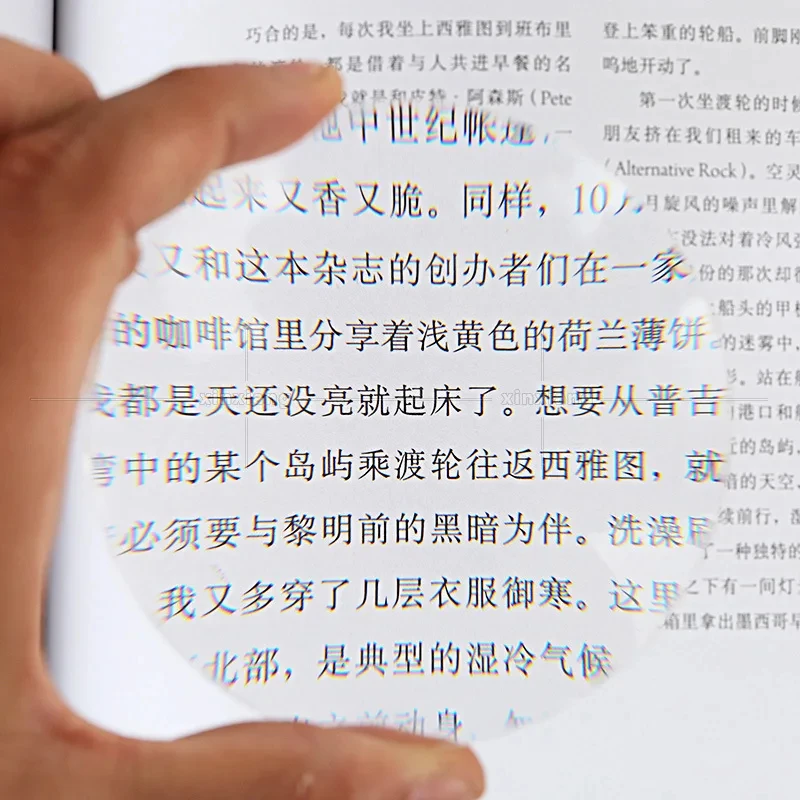 巧合的是，每次我坐上西雅图到班布里
都是借着与人共进早餐的名
就是和皮特·阿森斯（Pete
中世纪帐篷
一
起来又香又脆。同样，10月
又和这本杂志的创办者们在一家
的咖啡馆里分享着浅黄色的荷兰薄饼。
我都是天还没亮就起床了。想要从普吉
湾中的某个岛屿乘渡轮往返西雅图，就
必须要与黎明前的黑暗为伴。洗澡
我又多穿了几层衣服御寒。这里
北部，是典型的湿冷气候
动身，
登上笨重的轮船。前脚刚
呜地开动了。
第一次坐渡轮的时候
朋友挤在我们租来的车
（Alternative Rock）。空灵
月旋风的噪声里解
没法对着冷风
份的那次却
船头的甲
的迷雾中，
站在
港口和
的岛屿
暗的天空，
续前行，
了一种独特的
之下有一间灯
箱里拿出墨西哥早
xinxiang
xinxiang